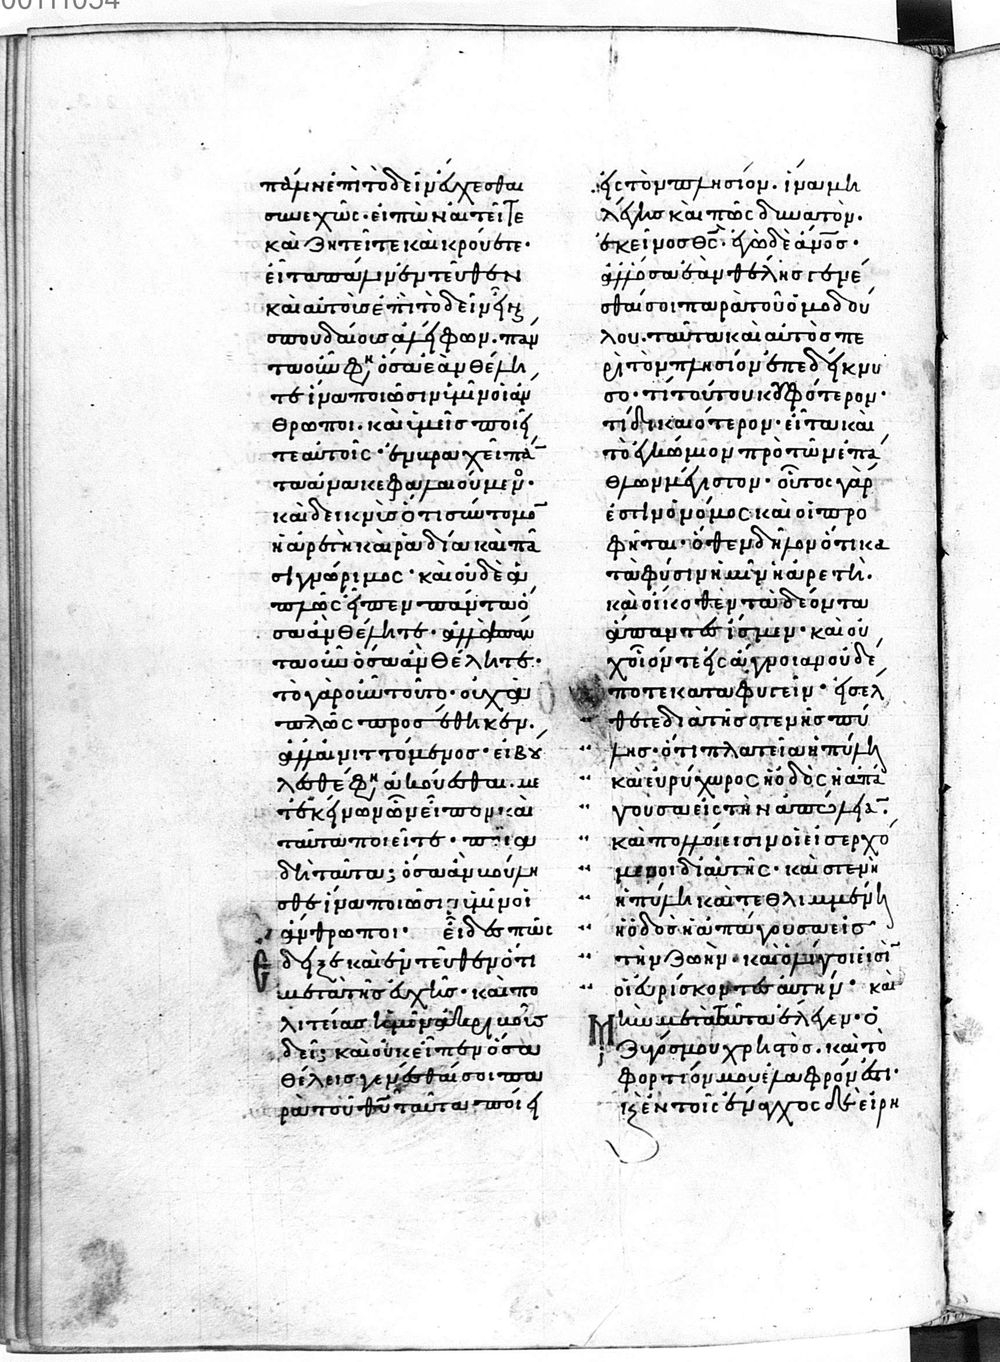 00111054
πάλιν ἐπὶ τὸ δεῖν ἔχεσθαι
συνεχῶς· εἰπὼν αἰτεῖτε
καὶ ζητεῖτε καὶ κρούετε·
εἶτα πάλιν ἐντεῦθεν
καὶ αὐτοὺς ἐπὶ τὸ δεῖν εἶναι
σπουδαίους ἀλείφων. πάν
τα οὖν φη ὅσα ἐὰν θέλη
τε ἵνα ποιῶσιν ὑμῖν οἱ ἄν
θρωποι. καὶ ὑμεῖς ποιεῖ
τε αὐτοῖς· ἐν βραχεῖ πᾶν
τα ἀνακεφαλαιούμενος·
καὶ δεικνὺς ὅτι σύντομος
ἡ ἀρετὴ καὶ ῥαδία καὶ πᾶ
σι γνώριμος· καὶ οὐδὲ ἁ
πλῶς εἶπεν πάντα ὅ
σα ἂν θέλητε· ἀλλὰ πάν
τα οὖν ὅσα ἂν θέλητε·
τὸ γὰρ οὖν τοῦτο οὐχ ἁ
πλῶς προσέθηκεν.
ἀλλ' αἰνιττόμενος· εἰ βού
λεσθέ φη ἀκούεσθαι. με
τ' ἐκείνων ὧν εἶπον καὶ
ταῦτα ποιεῖτε· ποῖα
δὴ ταῦτα; ὅσα ἂν βούλη
σθε ἵνα ποιῶσιν ὑμῖν οἱ
ἄνθρωποι· εἶδες πῶς
ἔδειξε καὶ ἐντεῦθεν ὅτι
μετὰ τῆς εὐχῆς· καὶ πο
λιτείας ἡμῖν ἀκριβοῦς
δεῖ; καὶ οὐκ εἶπεν ὅσα
θέλεις γενέσθαι σοι πα
ρὰ τοῦ θῦ ταῦτα ποίει
εἰς τὸν πλησίον. ἵνα μὴ
λέγῃς καὶ πῶς δυνατὸν.
ἐκεῖνος θς· ἐγὼ δὲ ἄνος·
ἀλλ' ὅσα ἐὰν θέλῃς γενέ
σθαι σοι παρὰ τοῦ ὁμοδού
λου. ταῦτα καὶ αὐτὸς πε
ρὶ τὸν πλησίον ἐπεδείκνυ
σο· τί τούτου κουφότερον·
τί δικαιότερον· εἶτα καὶ
τὸ ἐγκώμιον πρὸ τῶν ἐπά
θλων μέγιστον· οὗτος γάρ
ἐστιν ὁ νόμος καὶ οἱ προ
φῆται· ὅθεν δῆλον ὅτι κα
τὰ φύσιν ἡμῖν ἡ ἀρετὴ.
καὶ οἴκοθεν τὰ δέοντα
ἅπαντες ἴσμεν· καὶ οὐ
χ οἷόν τε εἰς ἄγνοιαν οὐδέ
ποτε καταφυγεῖν· εἰσέλ
θετε διὰ τῆς στενῆς πύ
λης· ὅτι πλατεῖα ἡ πύλη
καὶ εὐρύχωρος ἡ ὁδὸς ἡ ἀπά
γουσα εἰς τὴν ἀπώλειαν·
καὶ πολλοί εἰσιν οἱ εἰσερχό
μενοι δι' αὐτῆς· καὶ στενὴ
ἡ πύλη καὶ τεθλιμμένη
ἡ ὁδὸς ἡ ἀπάγουσα εἰς
τὴν ζωήν· καὶ ὀλίγοι εἰσὶν
οἱ εὑρίσκοντες αὐτήν· καὶ
μὴν μετὰ ταῦτα ἔλεγεν· ὁ
ζυγός μου χρηστὸς. καὶ τὸ
φορτίον μου ἐλαφρόν ἐστι·
καὶ ἐν τοῖς ἔναγχος δὲ εἰρη